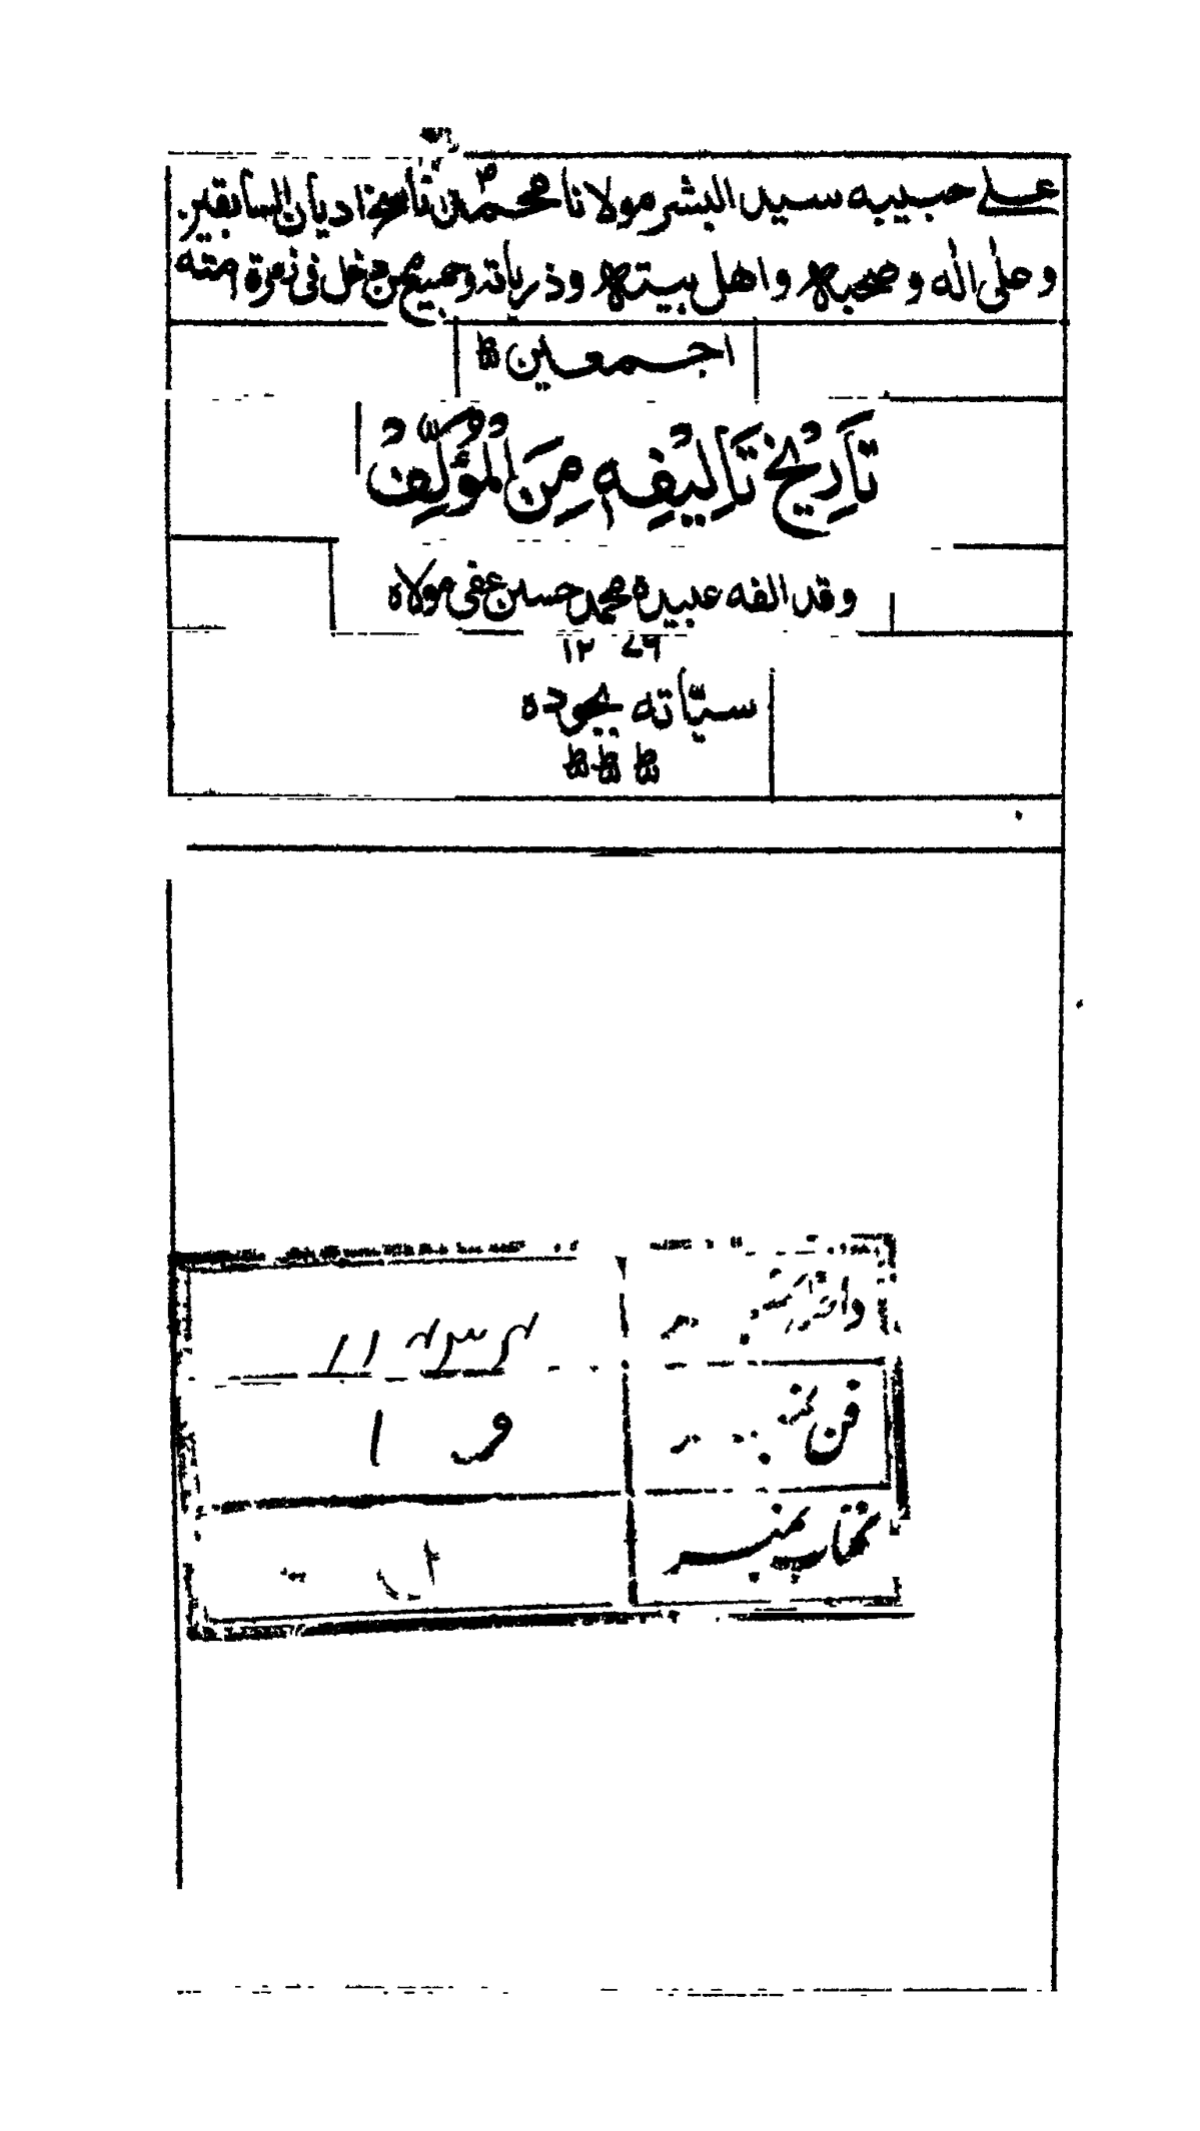 على حبيبه سيد البشر مولانا محمد ن ناسخ اديان السابقين
وعلى اله وصحبه واهل بيته وذرياته وجميع من دخل فى زمرة امته
اجمعين
تَارِيْخُ تَالِيْفِهٖ مِنَ الْمُؤَلِّفِ
وقد الفه عبيده محمد حسين عفى مولاه
١٢٧٦
سيّاته بجوده
فن نمبر
و ١
كتاب نمبر